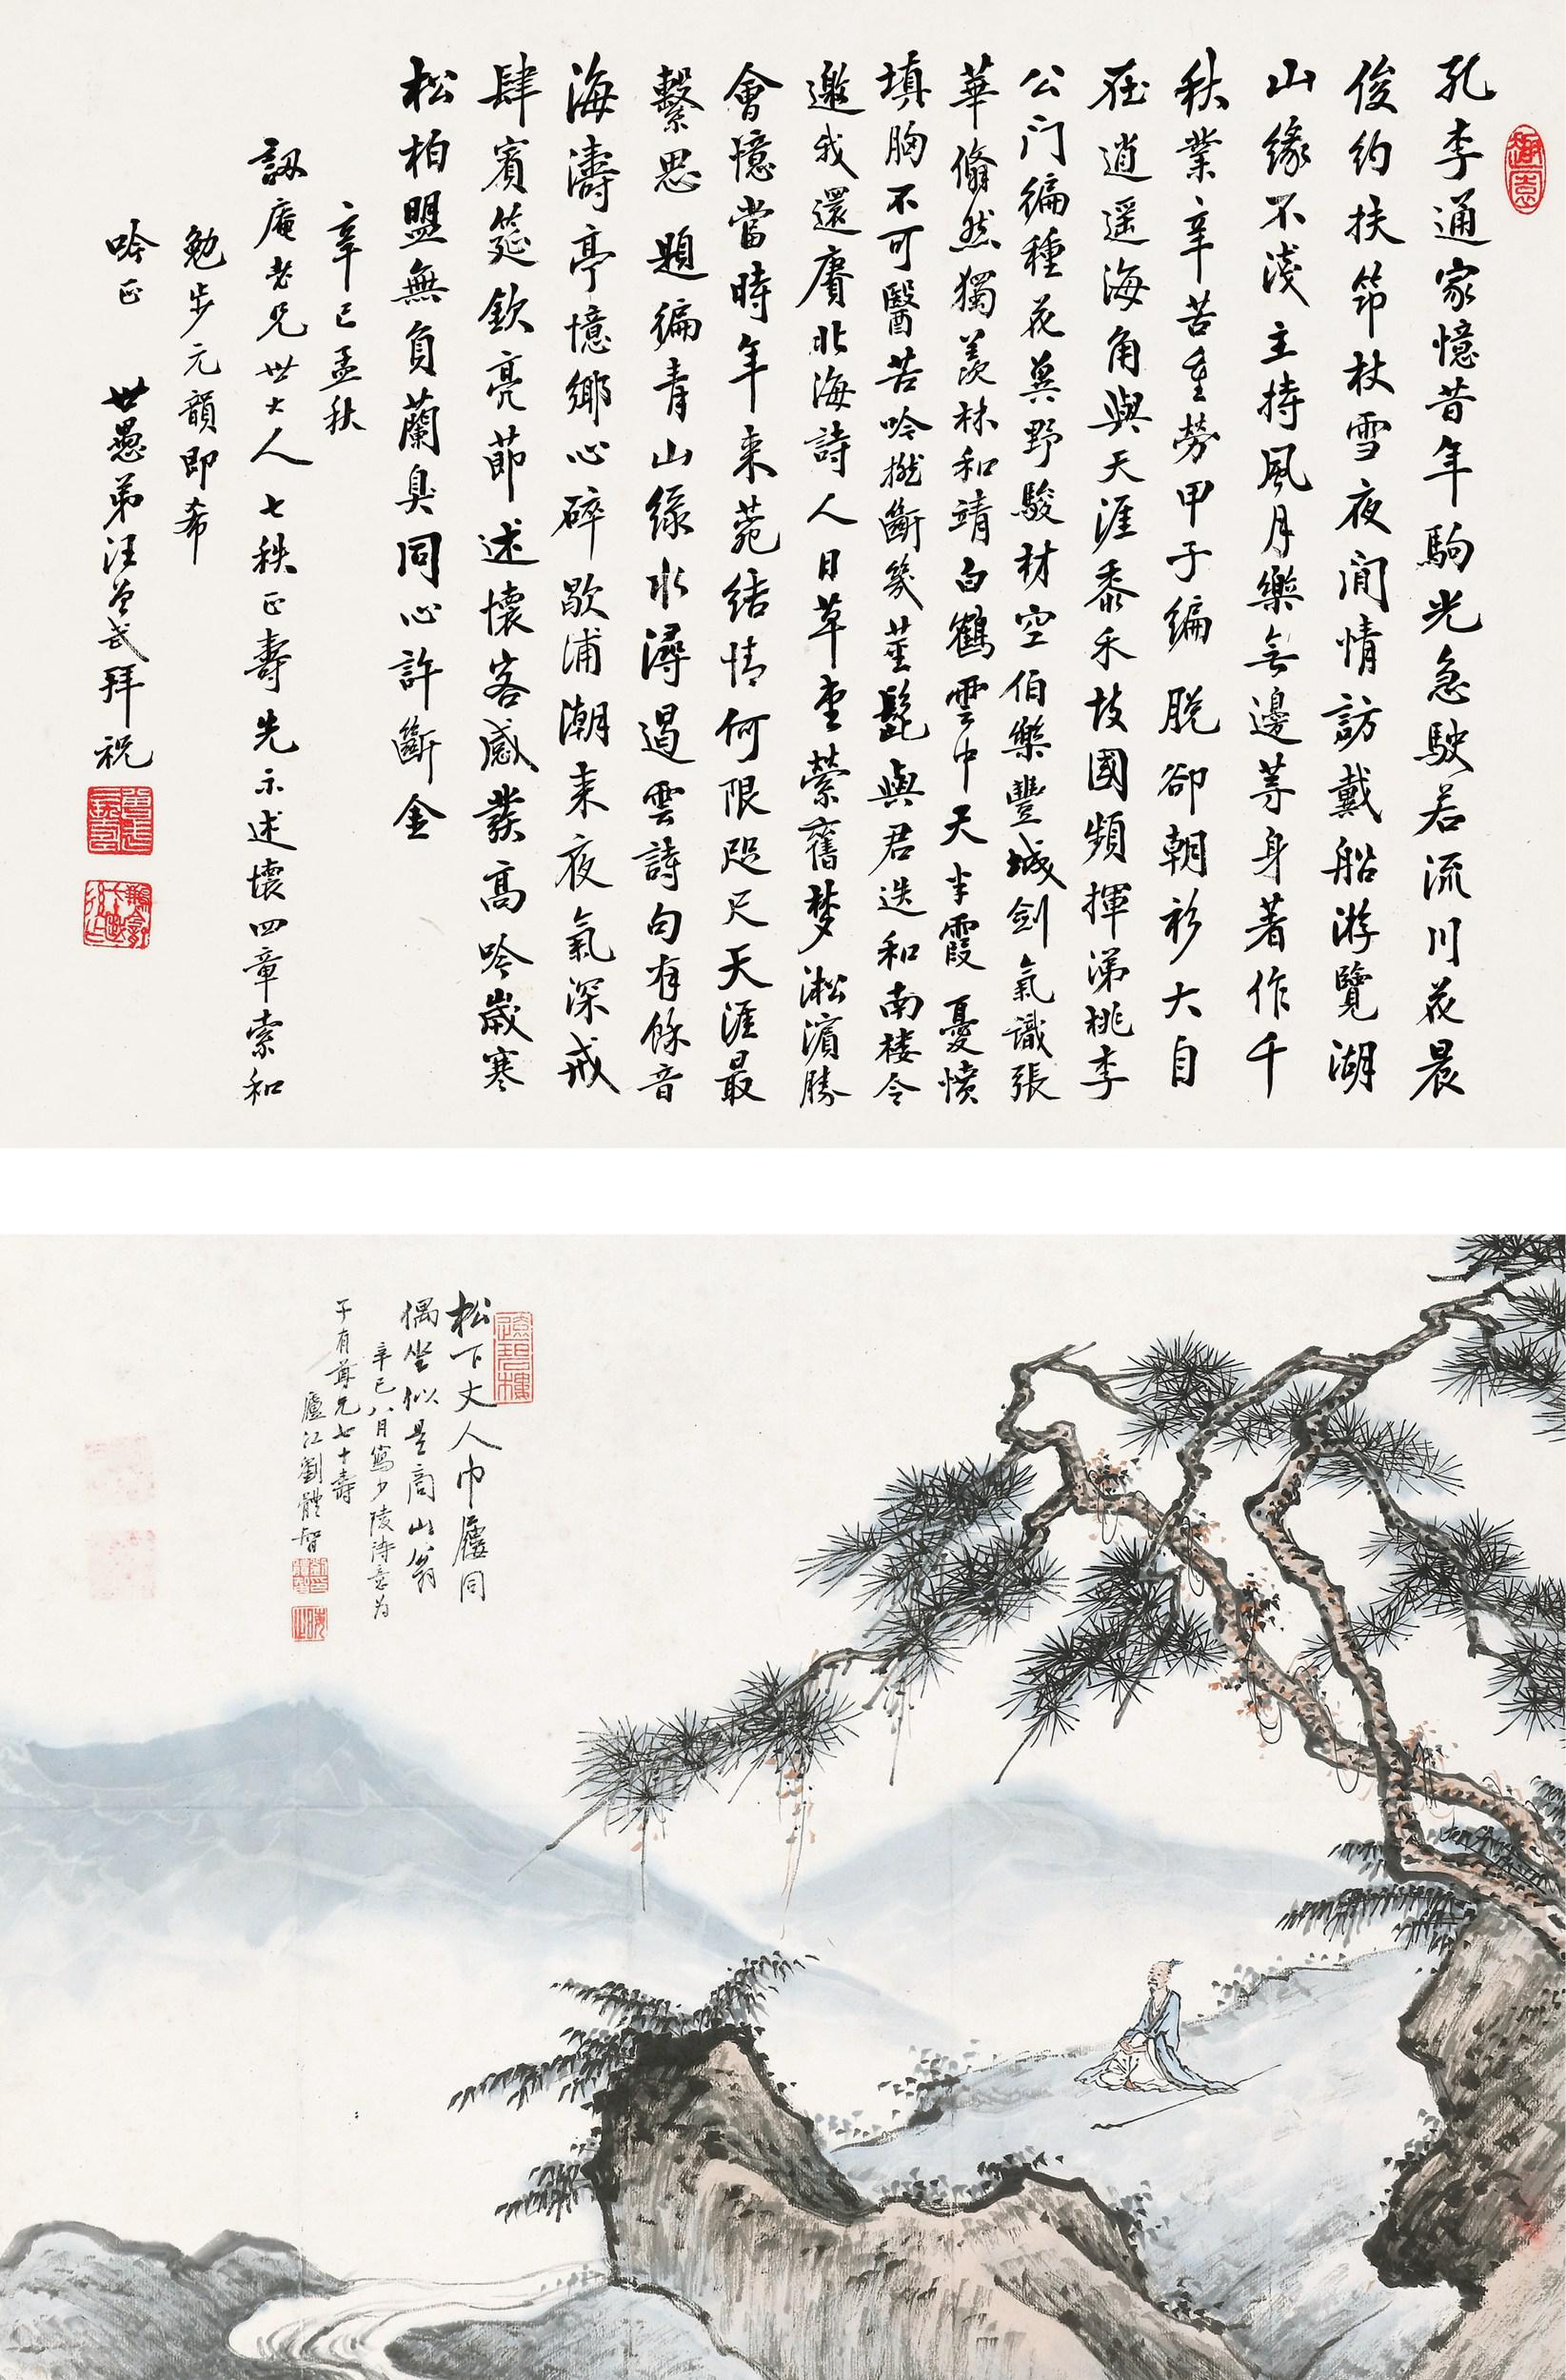 孔李通家憶昔年駒光急駛若流川花晨
俊約扶筇杖雪夜閒情訪戴船游覽湖
山緣不淺主持風月樂無邊等身著作千
秋業辛苦重勞甲子編脫卻朝衫大自
在逍遥海角與天涯黍禾故國頻揮涕桃李
公门編種花冀野駿材空伯樂豐城劍氣識張
華翛然獨羨林和靖白鶴雲中天半霞憂憤
填胸不可醫苦吟撚斷幾莖髭與君迭和南楼令
邀我還賡北海詩人日草堂縈舊梦淞濱勝
會憶當時年来菀结情何限咫尺天涯最
繫思題編青山綠水潯遏雲詩句有餘音
海濤亭憶鄉心碎歇浦潮来夜氣深戒
肆賓筵欽亮節述懷客感發高吟歲寒
松柏盟無負蘭臭同心許斷金
辛巳孟秋
訒庵老兄世大人七秩正壽先示述懷四章索和
勉步元韻即希
吟正 世愚弟汪曾武拜祝
松下丈人巾屨同
偶坐似是商山翁
辛巳八月寫少陵詩意为
子有尊兄七十壽
廬江劉體智